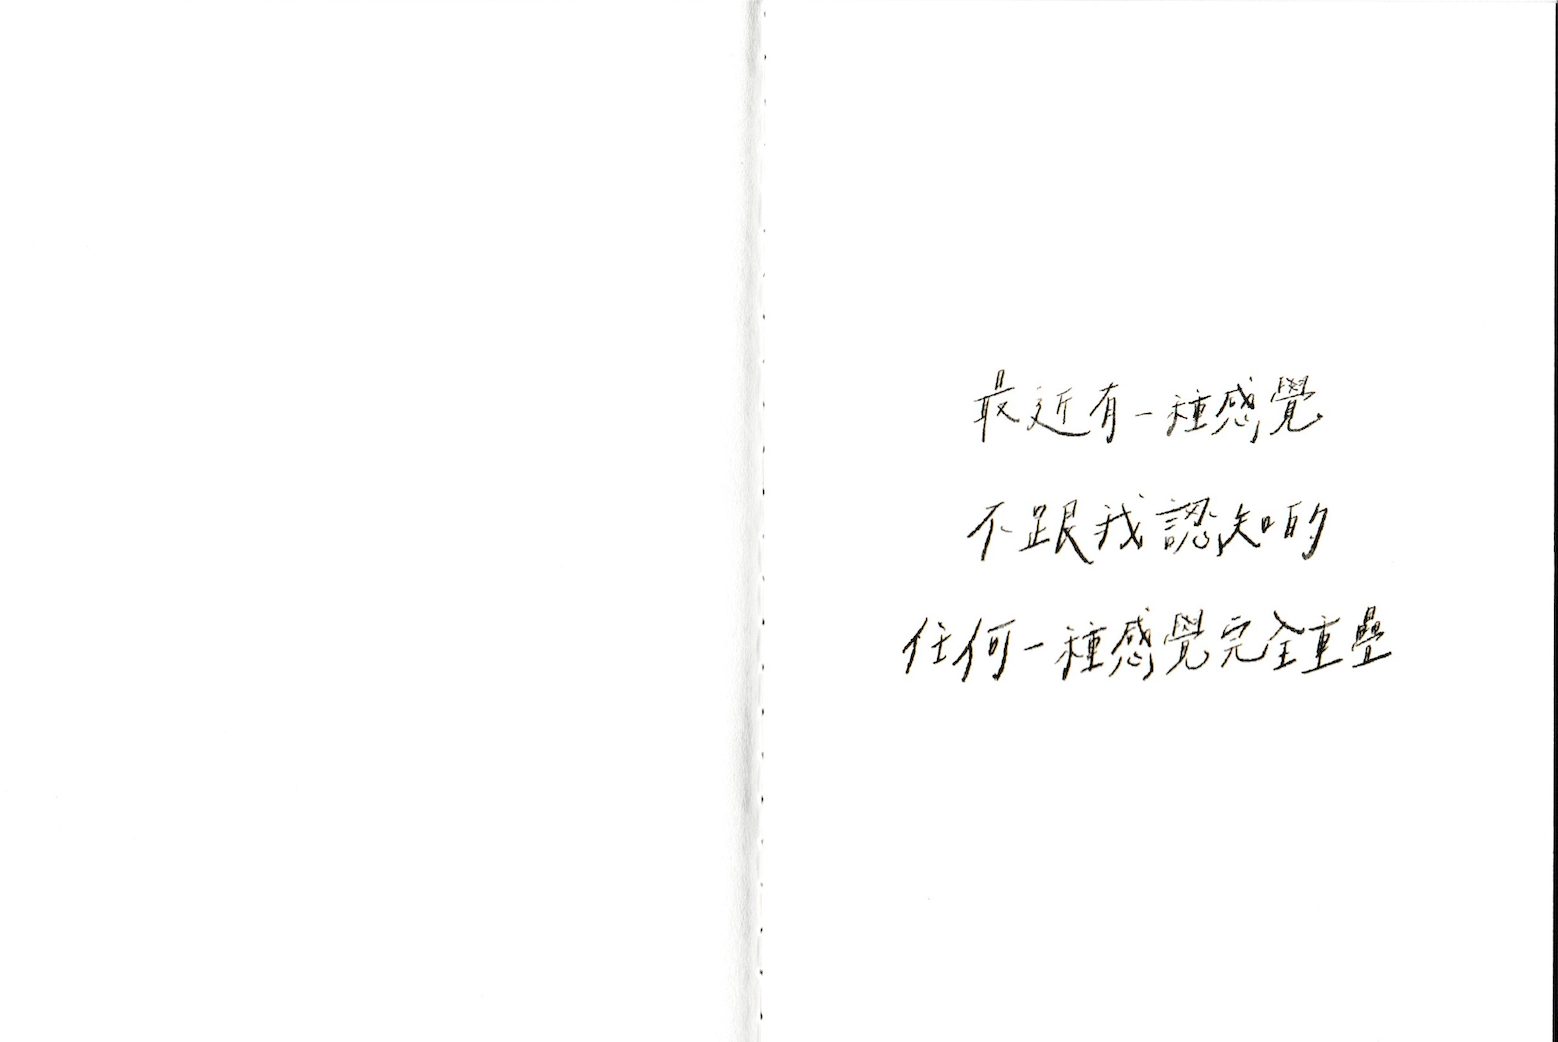 最近有一種感覺
不跟我認知的
任何一種感覺完全重疊